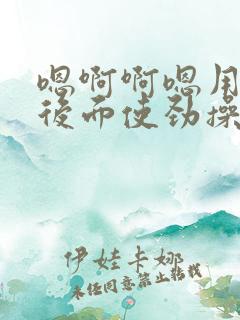 嗯啊啊嗯用
后而使劲操
伊娃卡娜
未经同意禁止转载